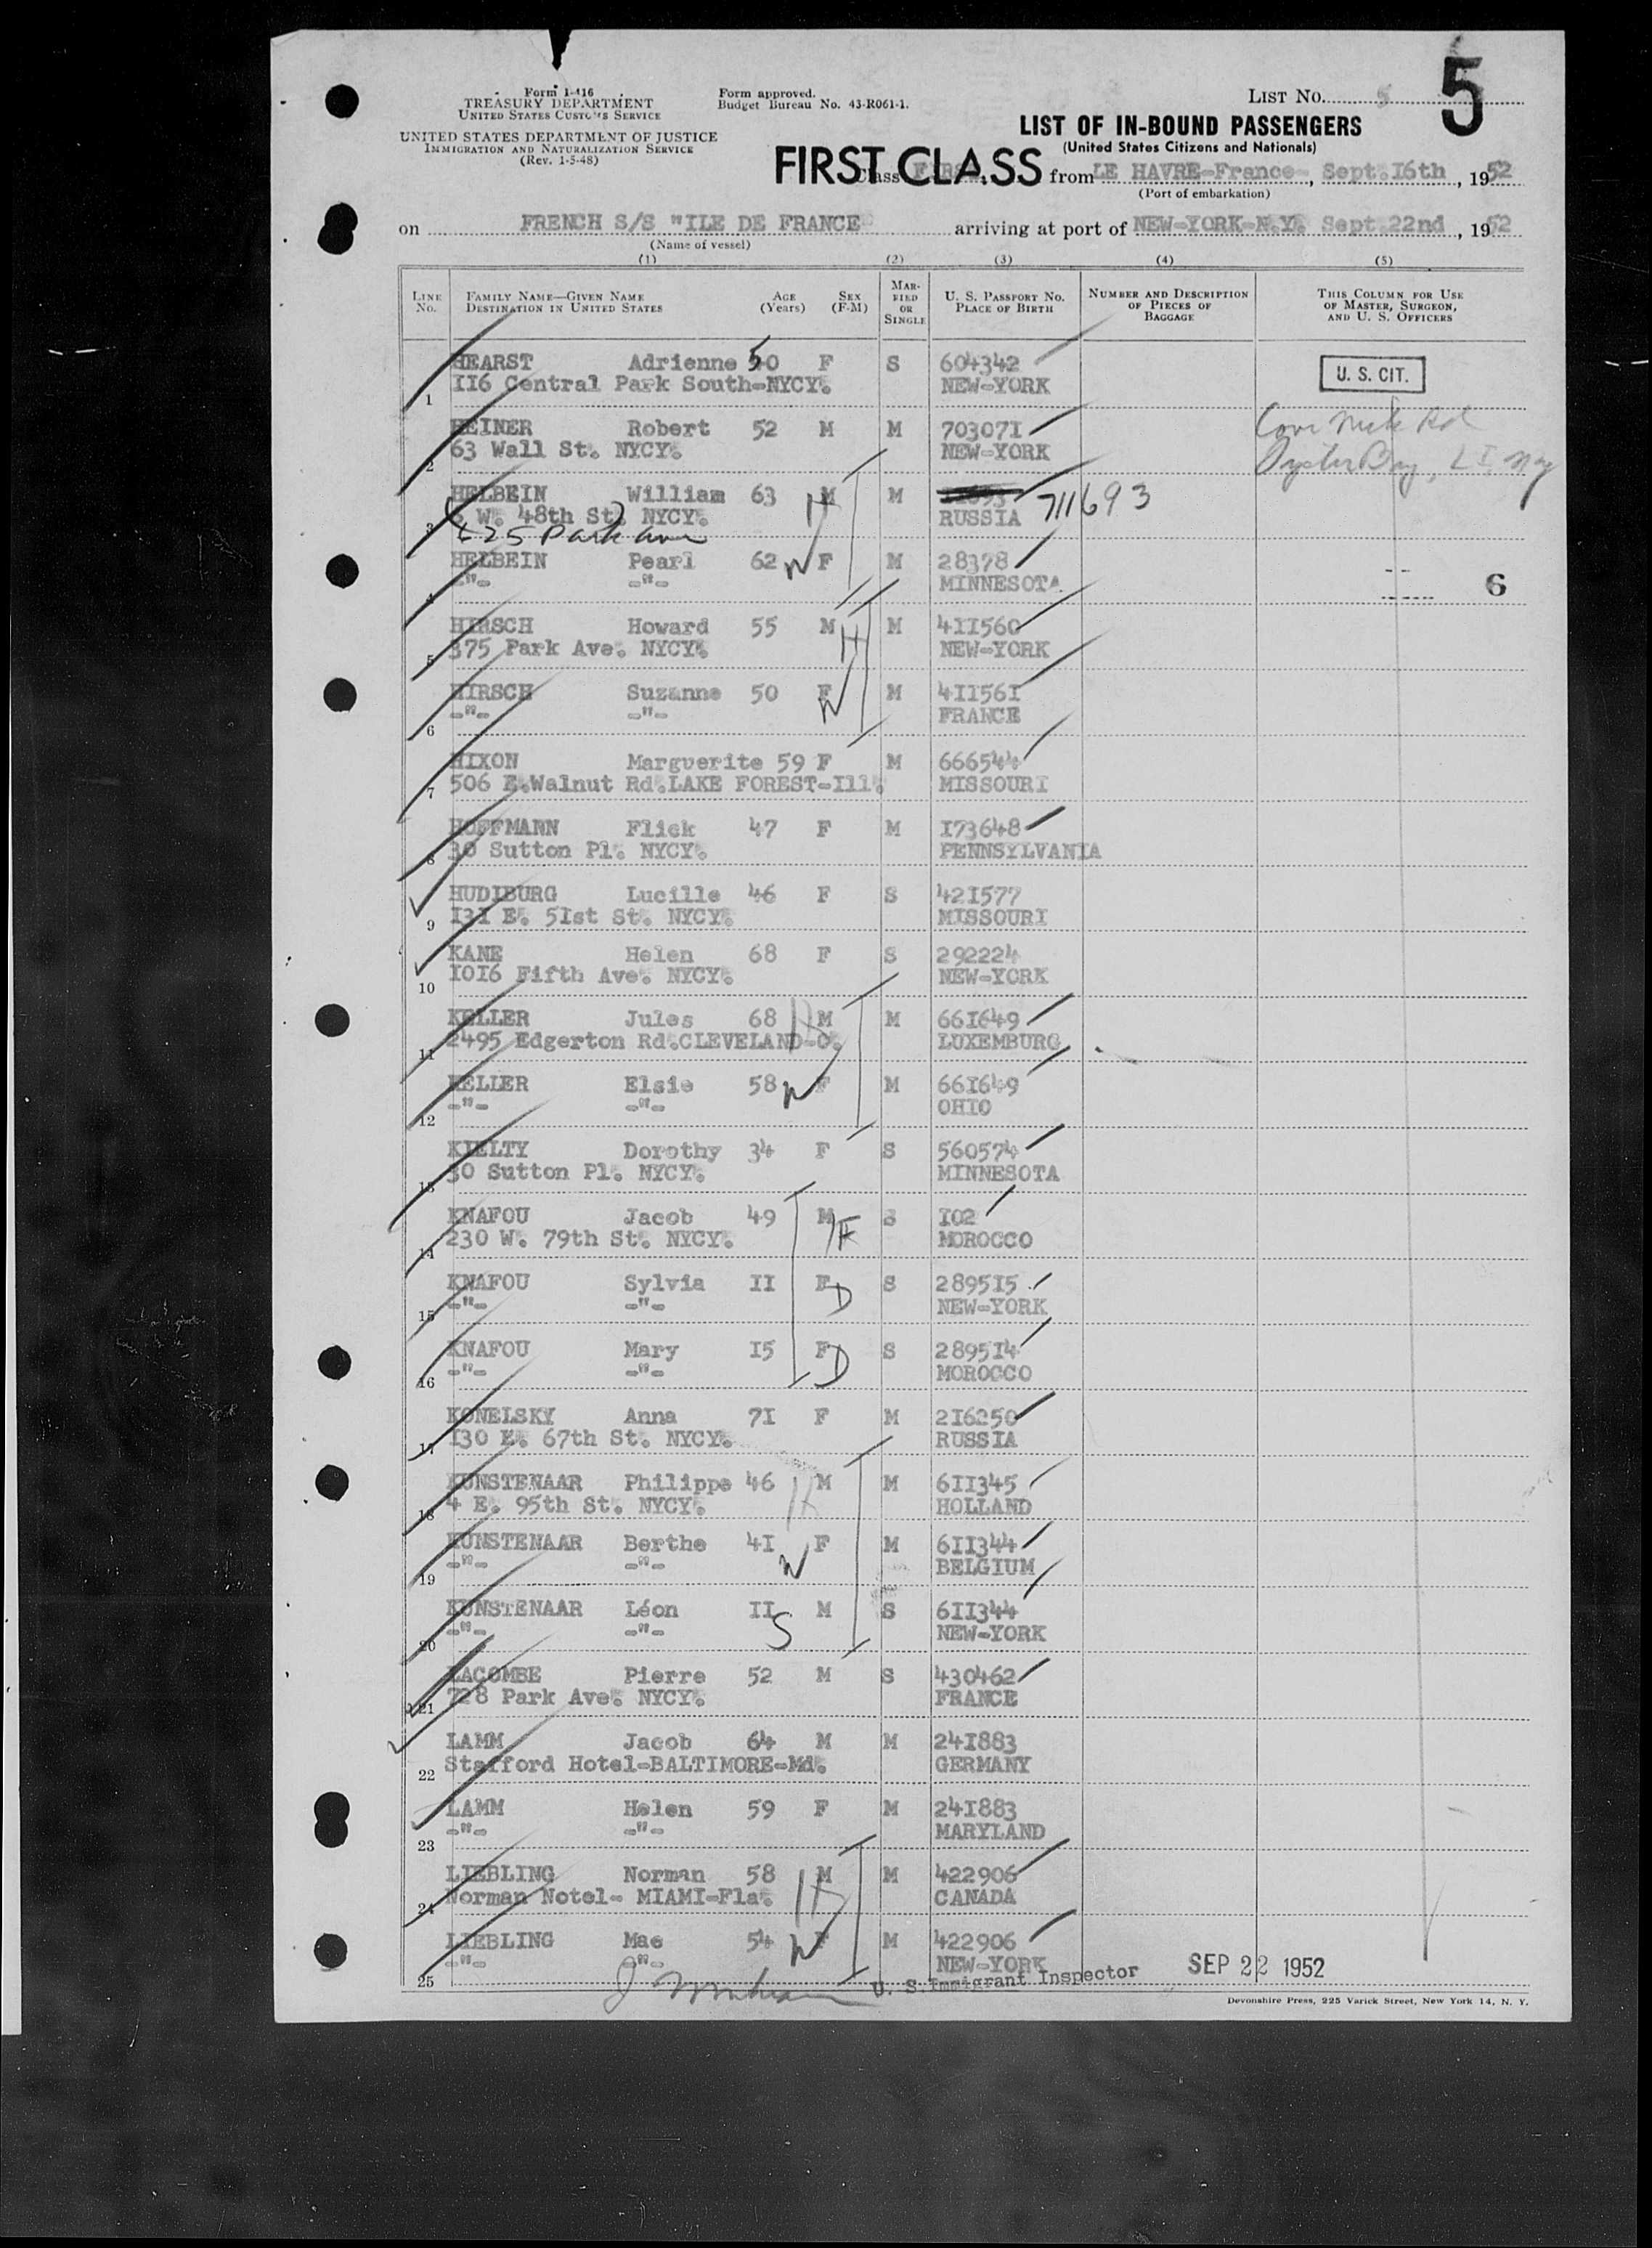 5
Form I-416
TREASURY DEPARTMENT
UNITED STATES CUSTOMS SERVICE
UNITED STATES DEPARTMENT OF JUSTICE
IMMIGRATION AND NATURALIZATION SERVICE
(Rev. 1-5-48)
Form approved.
Budget Bureau No. 43-R061-1.
LIST No. 5
LIST OF IN-BOUND PASSENGERS
(United States Citizens and Nationals)
FIRST CLASS
Class FIRST from LE HAVRE-France-, Sept. I6th, 1952
(Port of embarkation)
on FRENCH S/S "ILE DE FRANCE" arriving at port of NEW-YORK-N.Y. Sept. 22nd, 1952
(Name of vessel)
(1) (2) (3) (4) (5)
LINE No. FAMILY NAME—GIVEN NAME DESTINATION IN UNITED STATES AGE (Years) SEX (F-M) MARRIED OR SINGLE U. S. PASSPORT No. PLACE OF BIRTH NUMBER AND DESCRIPTION OF PIECES OF BAGGAGE THIS COLUMN FOR USE OF MASTER, SURGEON, AND U. S. OFFICERS
HEARST Adrienne 50 F S 604342 U. S. CIT.
1 II6 Central Park South-NYCY. NEW-YORK
HEINER Robert 52 M M 70307I Cove Neck Rd
2 63 Wall St. NYCY. NEW-YORK Oyster Bay, L I NY
HELBEIN William 63 M H M 711693
3 6 W. 48th St. NYCY. RUSSIA
425 Park Ave
HELBEIN Pearl 62 W F M 28378
4 -"- -"- MINNESOTA 6
HIRSCH Howard 55 M H M 4II560
5 375 Park Ave. NYCY. NEW-YORK
HIRSCH Suzanne 50 F W M 4II56I
6 -"- -"- FRANCE
HIXON Marguerite 59 F M 666544
7 506 E.Walnut Rd.LAKE FOREST-Ill. MISSOURI
HOFFMANN Flick 47 F M I73648
8 30 Sutton Pl. NYCY. PENNSYLVANIA
HUDIBURG Lucille 46 F S 42I577
9 I3I E. 5Ist St. NYCY. MISSOURI
KANE Helen 68 F S 292224
10 IOI6 Fifth Ave. NYCY. NEW-YORK
KELLER Jules 68 H M M 66I649
11 2495 Edgerton Rd.CLEVELAND-O. LUXEMBURG
KELLER Elsie 58 W F M 66I649
12 -"- -"- OHIO
KIELTY Dorothy 34 F S 560574
13 30 Sutton Pl. NYCY. MINNESOTA
KNAFOU Jacob 49 M F S I02
14 230 W. 79th St. NYCY. MOROCCO
KNAFOU Sylvia II F D S 2895I5
15 -"- -"- NEW-YORK
KNAFOU Mary I5 F D S 2895I4
16 -"- -"- MOROCCO
KONELSKY Anna 7I F M 2I6250
17 I30 E. 67th St. NYCY. RUSSIA
KUNSTENAAR Philippe 46 H M M 6II345
18 4 E. 95th St. NYCY. HOLLAND
KUNSTENAAR Berthe 4I W F M 6II344
19 -"- -"- BELGIUM
KUNSTENAAR Léon II S M S 6II344
20 -"- -"- NEW-YORK
LACOMBE Pierre 52 M S 430462
21 728 Park Ave. NYCY. FRANCE
LAMM Jacob 64 M M 24I883
22 Stafford Hotel-BALTIMORE-Md. GERMANY
LAMM Helen 59 F M 24I883
23 -"- -"- MARYLAND
LIEBLING Norman 58 H M M 422906
24 Norman Notel- MIAMI-Fla. CANADA
LIEBLING Mae 54 W F M 422906
25 -"- -"- NEW-YORK
U. S. Immigrant Inspector SEP 22 1952
Devonshire Press, 225 Varick Street, New York 14, N. Y.